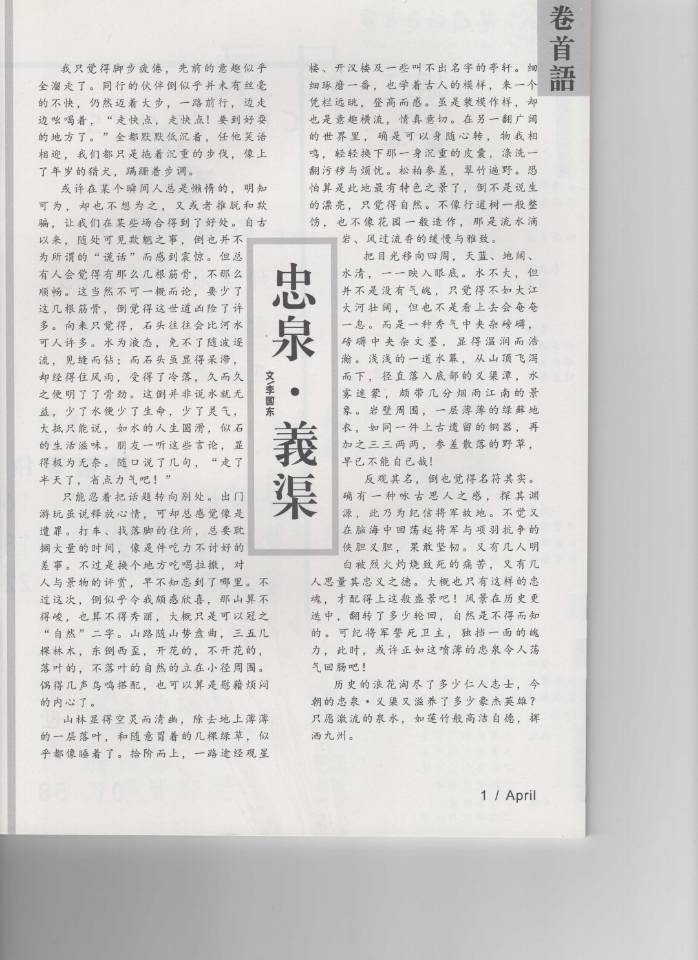 卷首語
忠泉·義渠
文/李国东
我只觉得脚步疲倦，先前的意趣似乎
全溜走了。同行的伙伴倒似乎并未有丝毫
的不快，仍然迈着大步，一路前行，边走
边吆喝着，“走快点，走快点！要到好耍
的地方了。”全都默默低沉着，任他笑语
相迎，我们都只是拖着沉重的步伐，像上
了年岁的猎犬，蹒跚着步调。
或许在某个瞬间人总是懒惰的，明知
可为，却也不想为之，又或者推脱和欺
骗，让我们在某些场合得到了好处。自古
以来，随处可见欺魍之事，倒也并不
为所谓的“谎话”而感到震惊。但总
有人会觉得有那么几根筋骨，不那么
顺畅。这当然不可一概而论，要少了
这几根筋骨，倒觉得这世道凶险了许
多。向来只觉得，石头往往会比河水
可人许多。水为液态，免不了随波逐
流，见缝而钻；而石头虽显得呆滞，
却经得住风雨，受得了冷落，久而久
之便明了了骨劲。这倒并非说水就无
益，少了水便少了生命，少了灵气，
大抵只能说，如水的人生圆滑，似石
的生活滋味。朋友一听这些言论，显
得极为无奈。随口说了几句，“走了
半天了，省点力气吧！”
只能忍着把话题转向别处。出门
游玩虽说释放心情，可却总感觉像是
遭罪。打车、找落脚的住所，总要耽
搁大量的时间，像是件吃力不讨好的
差事。不过是换个地方吃喝拉撒，对
人与景物的评赏，早不知忘到了哪里。不
过这次，倒似乎令我颇感欣喜，那山算不
得峻，也算不得秀丽，大概只是可以冠之
“自然”二字。山路随山势盘曲，三五几
棵林木，东倒西歪，开花的，不开花的，
落叶的，不落叶的自然的立在小径周围。
偶得几声鸟鸣搭配，也可以算是慰藉烦闷
的内心了。
山林显得空灵而清幽，除去地上薄薄
的一层落叶，和随意冒着的几棵绿草，似
乎都像睡着了。拾阶而上，一路途经观星
楼、开汉楼及一些叫不出名字的亭轩。细
细琢磨一番，也学着古人的模样，来一个
凭栏远眺，登高而感。虽是装模作样，却
也是意趣横流，情真意切。在另一翻广阔
的世界里，确是可以身随心转，物我相
鸣，轻轻换下那一身沉重的皮囊，涤洗一
翻污秽与烦忧。松柏参差，翠竹遍野。恐
怕算是此地最有特色之景了，倒不是说生
的漂亮，只觉得自然。不像行道树一般整
饬，也不像花园一般造作，那是流水滴
岩、风过流香的缓慢与雅致。
把目光移向四周，天蓝、地阔、
水清，一一映入眼底。水不大，但
并不是没有气魄，只觉得不如大江
大河壮阔，但也不是看上去会奄奄
一息。而是一种秀气中夹杂磅礴，
磅礴中夹杂文墨，显得温润而浩
瀚。浅浅的一道水幕，从山顶飞泻
而下，径直落入底部的义渠潭，水
雾迷蒙，颇带几分烟雨江南的景
象。岩壁周围，一层薄薄的绿藓地
衣，如同一件上古遗留的铜器，再
加之三三两两，参差散落的野草，
早已不能自已哉！
反观其名，倒也觉得名符其实。
确有一种咏古思人之感，探其渊
源，此乃为纪信将军故地。不觉又
在脑海中回荡起将军与项羽抗争的
侠胆义胆，果敢坚韧。又有几人明
白被烈火灼烧致死的痛苦，又有几
人思量其忠义之德。大概也只有这样的忠
魂，才配得上这般盛景吧！风景在历史更
迭中，翻转了多少轮回，自然是不得而知
的。可纪将军誓死卫主，独挡一面的魄
力，此时，或许正如这喷薄的忠泉令人荡
气回肠吧！
历史的浪花淘尽了多少仁人志士，今
朝的忠泉·义渠又滋养了多少豪杰英雄？
只愿激流的泉水，如莲竹般高洁自德，挥
洒九州。
1 / April